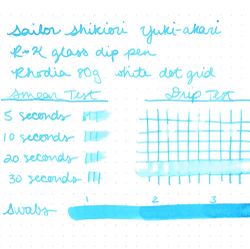 Sailor Shikiori Yuki-akari
R+K glass dip pen
Rhodia 80g white dot grid
Smear Test Drip Test
5 seconds
10 seconds
20 seconds
30 seconds
Swabs 1 2 3